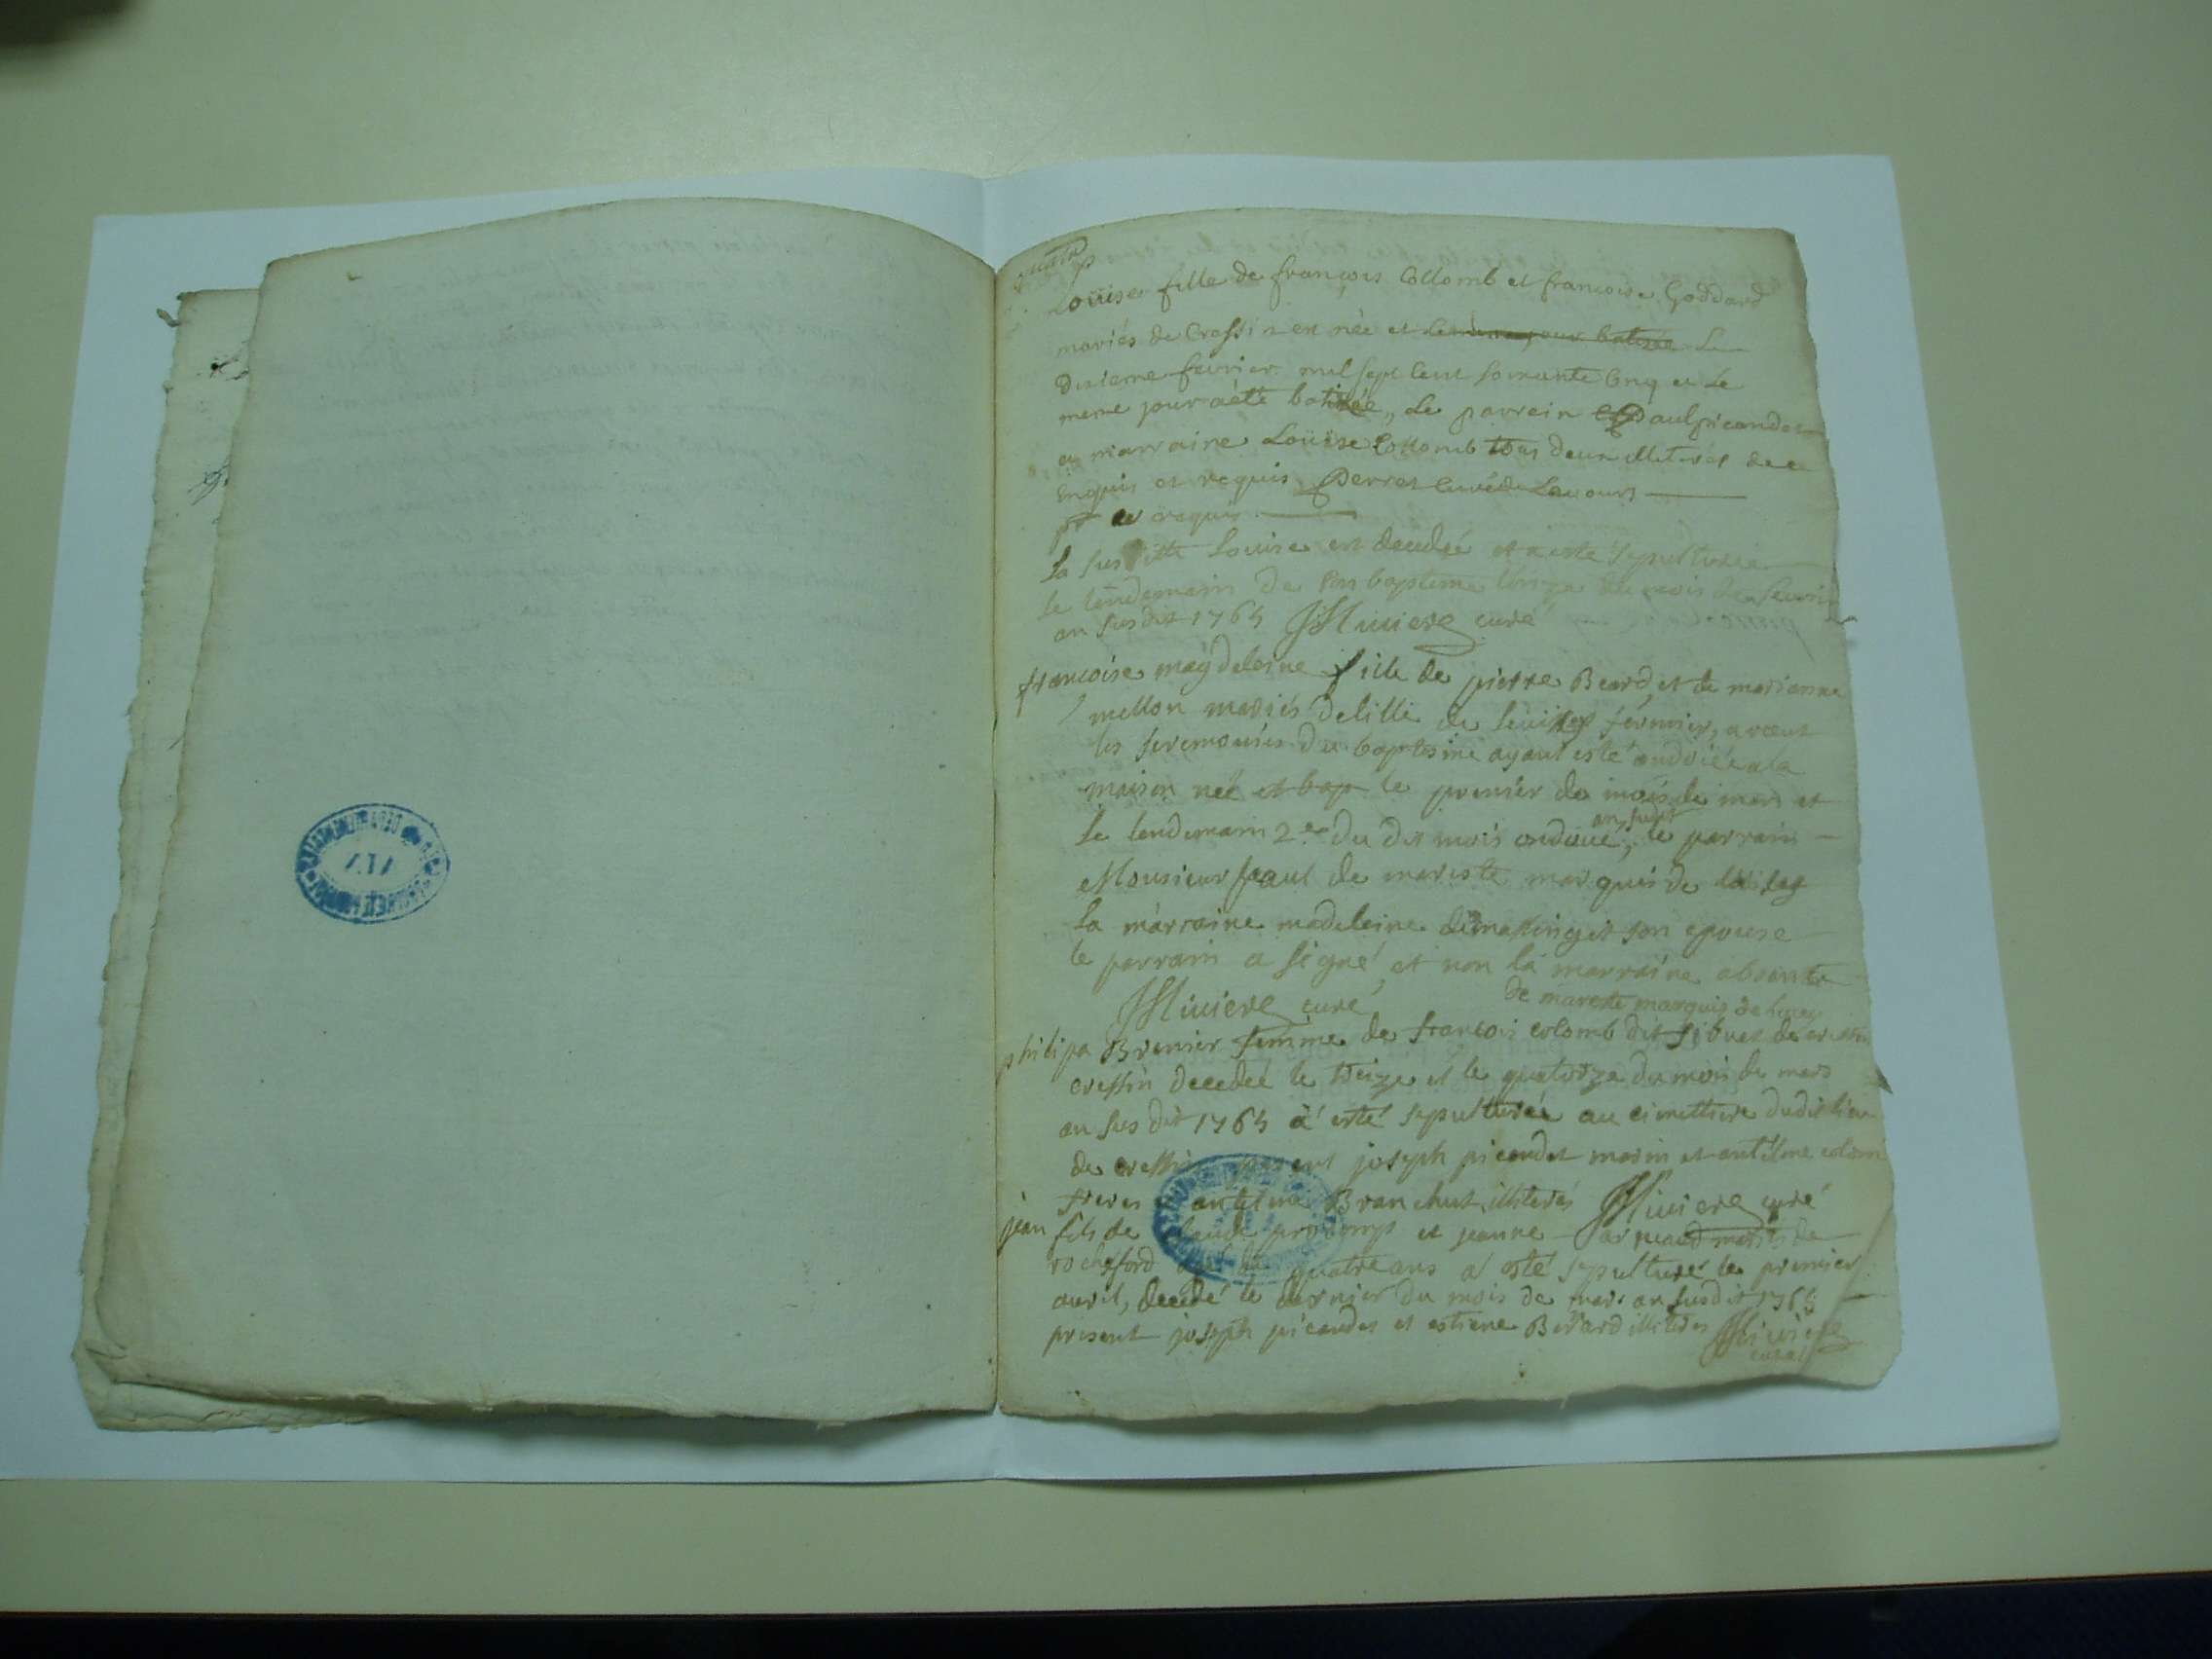 Loüise fille de françois Collomb et francoise Goddard
mariés de Cressin est née et le même jour batisée Le
dixieme fevrier mil sept cent soixante cinq et Le
meme jour a été batisée, Le parrein Paul picandet
et marraine Loüise Collomb tous deux illiterés de ce
enquis et requis Perret curé de Lavours
pr et requis
La susditte Louise est decedée et a esté sepulturée
le lendemain de son bapteme onze du mois de fevrier
an susdit 1765 Miviere curé
francoise magdeleine fille de pierre Beard et de marianne
mellon mariés de fermier, a receut
les seremonies du baptesme ayant esté ondoiée a la
maison née et bap le premier du mois de mars et
le lendemain 2e du dit mois ondoiée, an susdit le parrain
Monsieur paul de mareste marquis de
La marraine madeleine son epouse
le parrain a signé et non la marraine absente
de mareste marquis de
Miviere curé
philipa Brenier femme de francois colomb dit de
cressin decedée le treize et le quatorze du mois de mars
an susdit 1765 a esté sepulturée au cimettiere dudit lieu
de cressin present joseph picandet marin et antelme colom
freres antelme Branchut illiterés Miviere curé
jean fils de claude et jeanne mariés de
rocheford quatre ans a esté sepulturé le premier
avril, decedé le dernier du mois de mars an susdit 1765
present joseph picandet et estiene Berard illiteres Miviere
curé